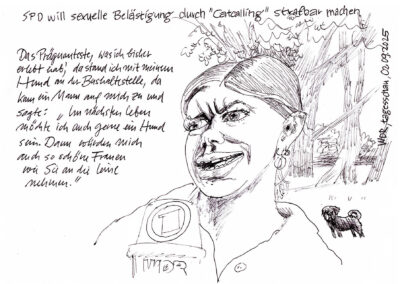 SPD will sexuelle Belästigung durch "Catcalling" strafbar machen
Das Prägnanteste, was ich bisher
erlebt hab', da stand ich mit meinem
Hund an der Bushaltestelle, da
kam ein Mann auf mich zu und
sagte: "Im nächsten Leben
möchte ich auch gerne ein Hund
sein. Dann würden mich
auch so schöne Frauen
wie Sie an die Leine
nehmen."
WDR, tagesschau, 02.09.2025
1
WDR